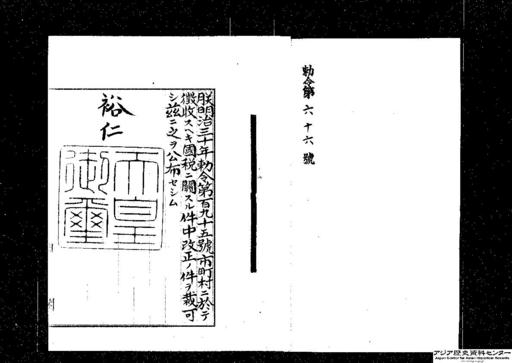 勅令第六十六號
朕明治三十年勅令第百九十五號市町村ニ於テ
徴收スヘキ國税ニ關スル件中改正ノ件ヲ裁可
シ茲ニ之ヲ公布セシム
裕仁
天皇
御璽
アジア歴史資料センター
Japan Center for Asian Historical Records